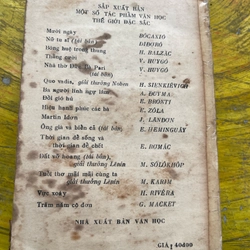 SẮP XUẤT BẢN
MỘT SỐ TÁC PHẨM VĂN HỌC
THẾ GIỚI ĐẶC SẮC
Mười ngày BÔCAXIÔ
Nữ tu sĩ (tái bản) ĐIĐƠRÔ
Bông huệ trong thung H. BALZĂC
Thằng cười V. HUYGÔ
Nhà thờ Đức Bà Pari V. HUYGÔ
(tái bản)
Quo vadis, giải thưởng Noben H. SIENKIÊVICH
Ba người lính ngự lâm A. ĐUYMA
Đồi gió hú E. BRONTI
Hiệu hạnh phúc các bà E. ZÔLA
Martin Iđơn J. LANĐƠN
Ông già và biển cả (tái bản) E. HEMINGUÂY
Thời gian để sống và
thời gian để chết E. RƠMAC
Đất vỡ hoang (tái bản),
giải thưởng Lênin M. SÔLÔKHỐP
Tuổi thơ mặt mũi cùng ta
giải thưởng Lênin M. KARIM
Vực xoáy H. RIVÊRA
Trăm năm cô đơn G. MACKET
NHÀ XUẤT BẢN VĂN HỌC
GIÁ: 40đ00